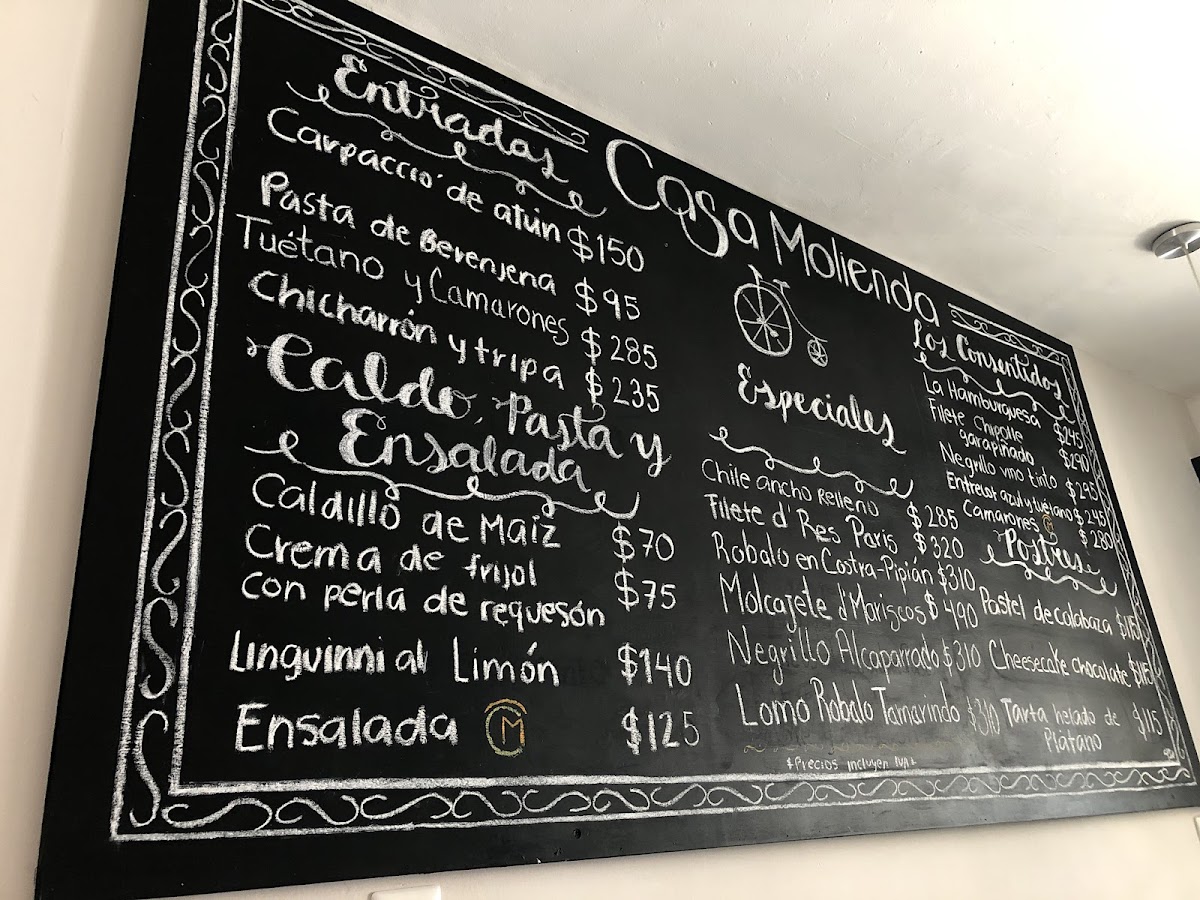 Casa Molienda
Entradas
Carpaccio de atún $150
Pasta de Berenjena $95
Tuétano y Camarones $285
Chicharrón y tripa $235
Caldo, Pasta y
Ensalada
Caldillo de Maíz $70
Crema de frijol
con perla de requesón $75
Linguinni al Limón $140
Ensalada CM $125
Especiales
Chile ancho Relleno $285
Filete d' Res Paris $320
Robalo en Costra-Pipián $310
Molcajete d' Mariscos $490
Negrillo Alcaparrado $310
Lomo Robalo Tamarindo $310
*Precios incluyen IVA*
Los Consentidos
La Hamburguesa $245
Filete Chipotle
garapiñado $290
Negrillo vino tinto $295
Entrecot azul y tuétano $245
Camarones $280
Postres
Pastel de calabaza $115
Cheesecake chocolate $115
Tarta helado de $115
Plátano